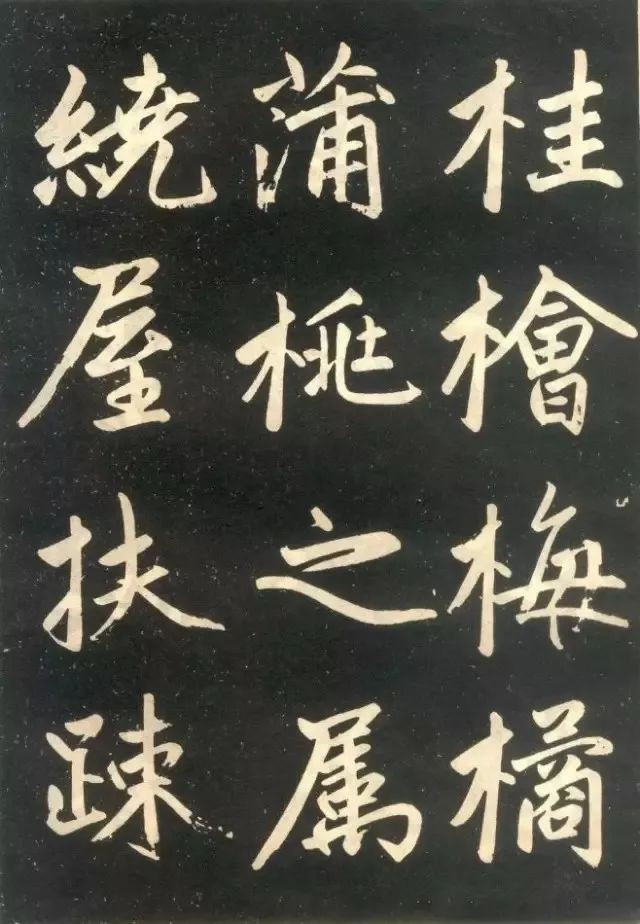 桂檜梅橘
蒲桃之属
繞屋扶踈